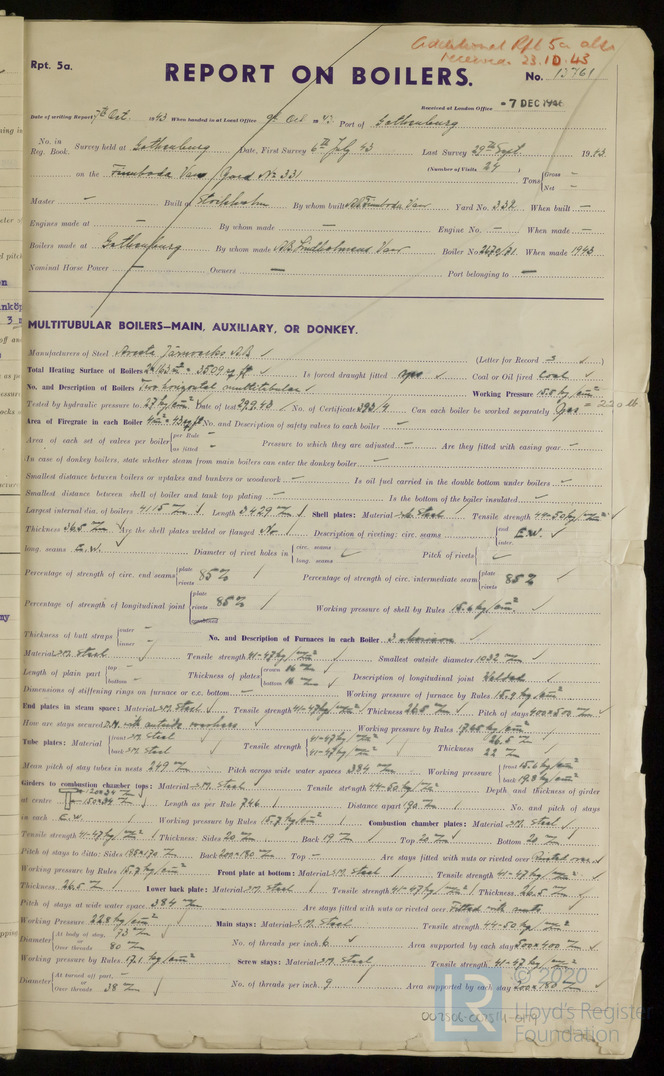 Additional Rpt 5a also
received 23.10.43
Rpt. 5a.
REPORT ON BOILERS.
No. 13761
Received at London Office - 7 DEC 1946
Date of writing Report 7th Oct. 1943 When handed in at Local Office 9th Oct 1943 Port of Gothenburg
No. in Reg. Book. Survey held at Gothenburg Date, First Survey 6th July 43 Last Survey 29th Sept. 1943
(Number of Visits 24
on the Finnboda Varv Yard No 331 Tons { Gross - Net -
Master - Built at Stockholm By whom built AB Finnboda Varv Yard No. 332 When built -
Engines made at - By whom made - Engine No. - When made -
Boilers made at Gothenburg By whom made A.B. Lindholmens Varv Boiler No. 2670/71 When made 1943
Nominal Horse Power - Owners - Port belonging to -
MULTITUBULAR BOILERS—MAIN, AUXILIARY, OR DONKEY.
Manufacturers of Steel Avesta Järnverks A.B. (Letter for Record S
Total Heating Surface of Boilers = 3509 sq ft Is forced draught fitted Coal or Oil fired Coal
No. and Description of Boilers Two horizontal multitubular Working Pressure 15.5 kg/cm² = 220 lb
Tested by hydraulic pressure to 27 kg/cm² Date of test 29.9.43 No. of Certificate Can each boiler be worked separately Yes
Area of Firegrate in each Boiler 4 m² = 43 sq ft No. and Description of safety valves to each boiler -
Area of each set of valves per boiler { per Rule - as fitted - Pressure to which they are adjusted - Are they fitted with easing gear -
In case of donkey boilers, state whether steam from main boilers can enter the donkey boiler -
Smallest distance between boilers or uptakes and bunkers or woodwork - Is oil fuel carried in the double bottom under boilers -
Smallest distance between shell of boiler and tank top plating - Is the bottom of the boiler insulated -
Largest internal dia. of boilers 4115 mm Length 3429 mm Shell plates: Material S.M. Steel Tensile strength 44-50 kg/mm²
Thickness 36.5 mm Are the shell plates welded or flanged No Description of riveting: circ. seams { end E.W. inter.
long. seams E.W. Diameter of rivet holes in { circ. seams long. seams Pitch of rivets {
Percentage of strength of circ. end seams { plate rivets 85% Percentage of strength of circ. intermediate seam { plate rivets 85%
Percentage of strength of longitudinal joint { plate rivets 85% Working pressure of shell by Rules 15.6 kg/cm²
Thickness of butt straps { outer - inner - No. and Description of Furnaces in each Boiler 3
Material S.M. Steel Tensile strength 41-47 kg/mm² Smallest outside diameter 1032 mm
Length of plain part { top - bottom - Thickness of plates { crown 16 mm bottom 16 mm Description of longitudinal joint Welded
Dimensions of stiffening rings on furnace or c.c. bottom - Working pressure of furnace by Rules 15.9 kg/cm²
End plates in steam space: Material S.M. Steel Tensile strength 41-47 kg/mm² Thickness 26.5 mm Pitch of stays 400x500 mm
How are stays secured D.N. with outside washers Working pressure by Rules 17.65 kg/cm²
Tube plates: Material { front S.M. Steel back S.M. Steel Tensile strength { 41-47 kg/mm² 41-47 kg/mm² Thickness { 26.5 mm 22 mm
Mean pitch of stay tubes in nests 249 mm Pitch across wide water spaces 384 mm Working pressure { front 15.6 kg/cm² back 19.8 kg/cm²
Girders to combustion chamber tops: Material S.M. Steel Tensile strength 44-50 kg/mm² Depth and thickness of girder
at centre 120x34 mm 150x34 mm Length as per Rule 746 Distance apart 190 mm No. and pitch of stays
in each E.W. Working pressure by Rules 15.7 kg/cm² Combustion chamber plates: Material S.M. Steel
Tensile strength 41-47 kg/mm² Thickness: Sides 20 mm Back 19 mm Top 20 mm Bottom 20 mm
Pitch of stays to ditto: Sides 198x170 mm Back 200x180 mm Top - Are stays fitted with nuts or riveted over Riveted over
Working pressure by Rules 15.7 kg/cm² Front plate at bottom: Material S.M. Steel Tensile strength 41-47 kg/mm²
Thickness 26.5 mm Lower back plate: Material S.M. Steel Tensile strength 41-47 kg/mm² Thickness 26.5 mm
Pitch of stays at wide water space 384 mm Are stays fitted with nuts or riveted over Fitted with nuts
Working Pressure 22.8 kg/cm² Main stays: Material S.M. Steel Tensile strength 44-50 kg/mm²
Diameter { At body of stay, 73 mm or Over threads 80 mm No. of threads per inch 6 Area supported by each stay 500x400 mm
Working pressure by Rules 17.1 kg/cm² Screw stays: Material S.M. Steel Tensile strength 41-47 kg/mm²
Diameter { At turned off part, - or Over threads 38 mm No. of threads per inch 9 Area supported by each stay 200x180 mm
LR
© 2020
Lloyd's Register
Foundation